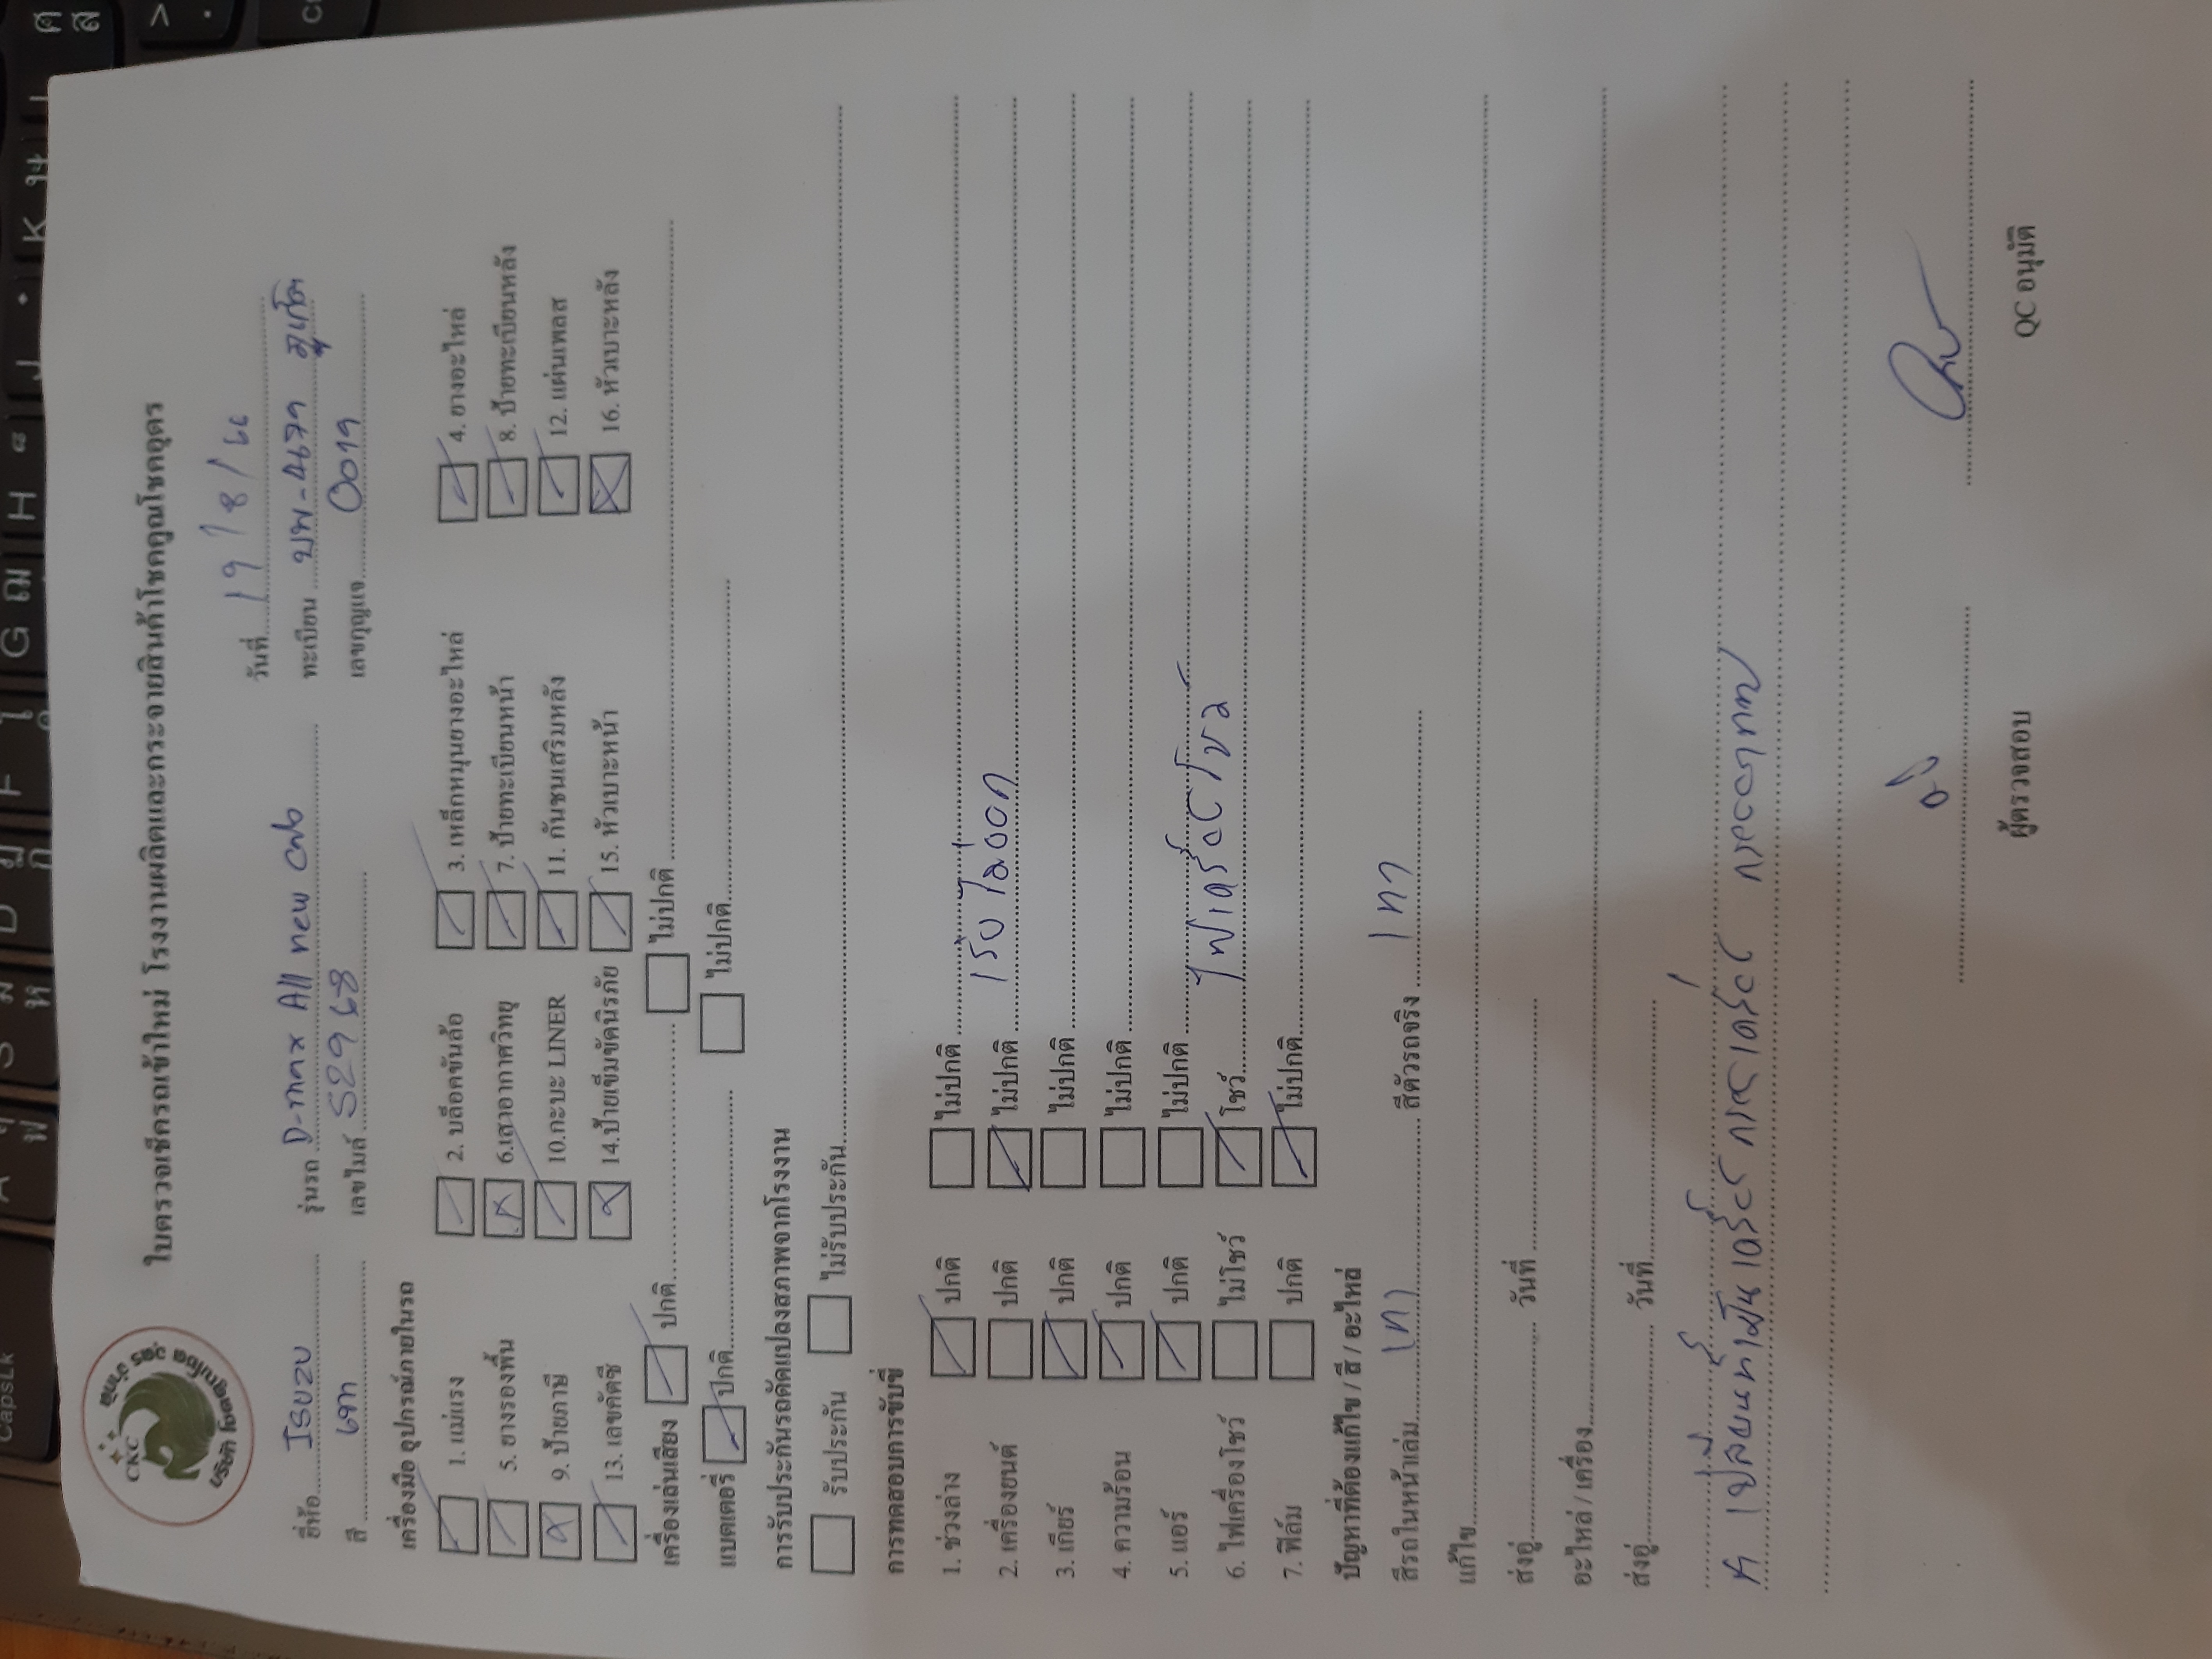 ใบตรวจเช็กรถเข้าใหม่ โรงงานผลิตและกระจายสินค้าโชคคูณโชคอุดร
CKC
บริษัท โชคคูณโชค อุดร จำกัด
วันที่ 19/8/66
ยี่ห้อ ISUZU รุ่นรถ D-max All new cab ทะเบียน บพ-4679 ภูเก็ต
สี เทา เลขไมล์ 52968 เลขกุญแจ 0019
เครื่องมือ อุปกรณ์ภายในรถ
1. แม่แรง 2. บล็อคขันล้อ 3. เหล็กหมุนยางอะไหล่ 4. ยางอะไหล่
5. ยางรองพื้น 6.เสาอากาศวิทยุ 7. ป้ายทะเบียนหน้า 8. ป้ายทะเบียนหลัง
9. ป้ายภาษี 10.กะบะ LINER 11. กันชนเสริมหลัง 12. แผ่นเพลส
13. เลขคัตซี 14.ป้ายเข็มขัดนิรภัย 15. หัวเบาะหน้า 16. หัวเบาะหลัง
เครื่องเล่นเสียง ปกติ ไม่ปกติ
แบตเตอรี่ ปกติ ไม่ปกติ
การรับประกันรถดัดแปลงสภาพจากโรงงาน
รับประกัน ไม่รับประกัน
การทดสอบการขับขี่
1. ช่วงล่าง ปกติ ไม่ปกติ
2. เครื่องยนต์ ปกติ ไม่ปกติ เร่งไม่ออก
3. เกียร์ ปกติ ไม่ปกติ
4. ความร้อน ปกติ ไม่ปกติ
5. แอร์ ปกติ ไม่ปกติ
6. ไฟเครื่องโชว์ ไม่โชว์ โชว์ ไฟเครื่องโชว์
7. ฟิล์ม ปกติ ไม่ปกติ
ปัญหาที่ต้องแก้ไข / สี / อะไหล่
สีรถในหน้าเล่ม เทา สีตัวรถจริง เทา
แก้ไข
ส่งอู่ วันที่
อะไหล่ / เครื่อง
ส่งอู่ วันที่
ผู้ตรวจสอบ QC อนุมัติ